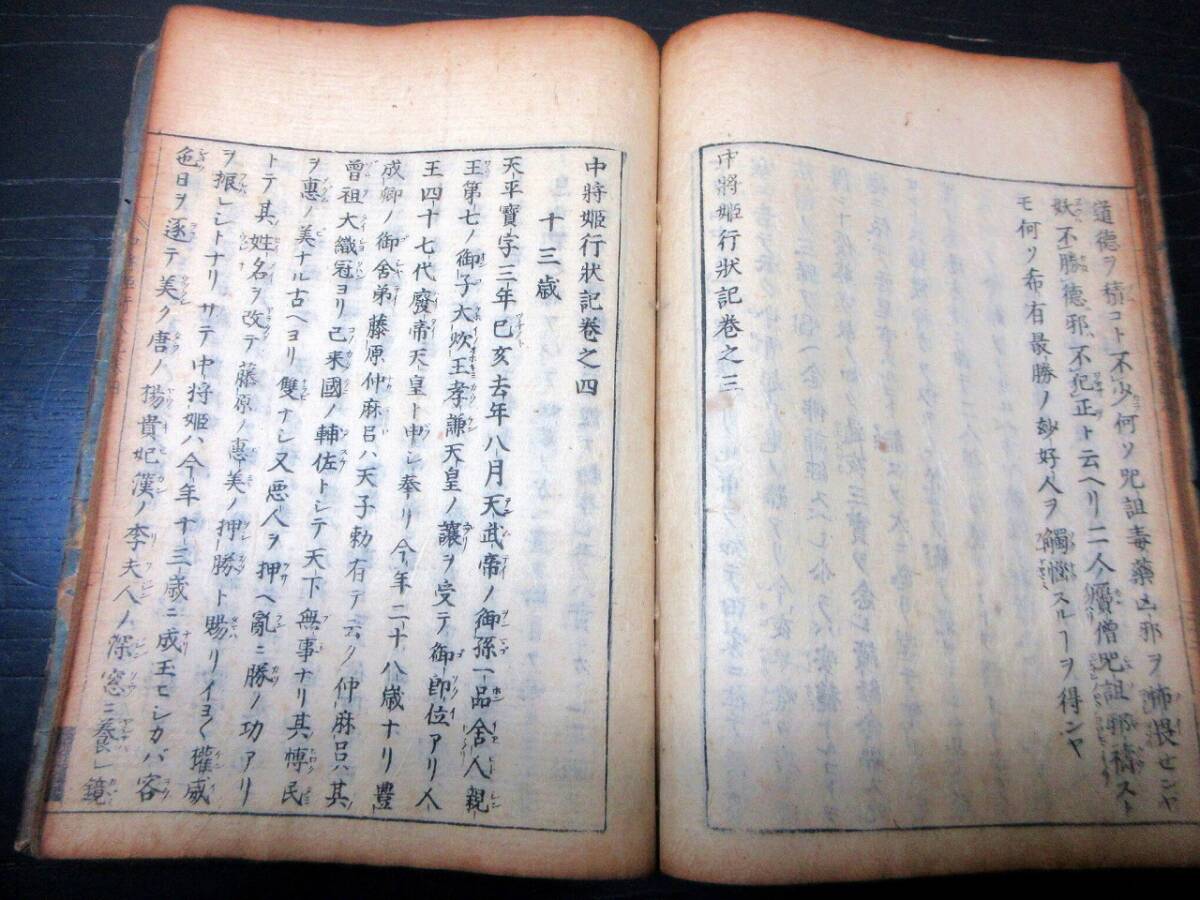 道德ヲ積コト不少何ソ呪詛毒藥凶邪ヲ怖畏センヤ
妖不勝德邪不犯正ト云ヘリ二人贋僧呪詛邪禱スト
モ何ソ希有最勝ノ妙好人ヲ觸惱スルヿヲ得ンヤ
中將姬行狀記卷之三
中將姬行狀記卷之四
十三歲
天平寶字三年己亥去年八月天武帝ノ御孫一品舍人親
王第七ノ御子大炊王孝謙天皇ノ讓ヲ受テ御即位アリ人
王四十七代廢帝天皇ト申シ奉リ今年二十八歲ナリ豐
成卿ノ御舍弟藤原仲麻呂ハ天子勅有テ云ク仲麻呂ハ其
曾祖大織冠ヨリ已来國ノ輔佐トシテ天下無事ナリ其博民
ヲ惠ノ美ナル古ヘヨリ雙ナシ又惡人ヲ押ヘ亂ニ勝ノ功アリ
トテ其姓名ヲ改テ藤原ノ惠美ノ押勝ト賜リイヨ〱權威
ヲ振シトナリサテ中将姫ハ今年十三歳ニ成玉ヒシカバ容
色日ヲ逐テ美ク唐ノ揚貴妃漢ノ李夫人ノ深窓ニ養鏡